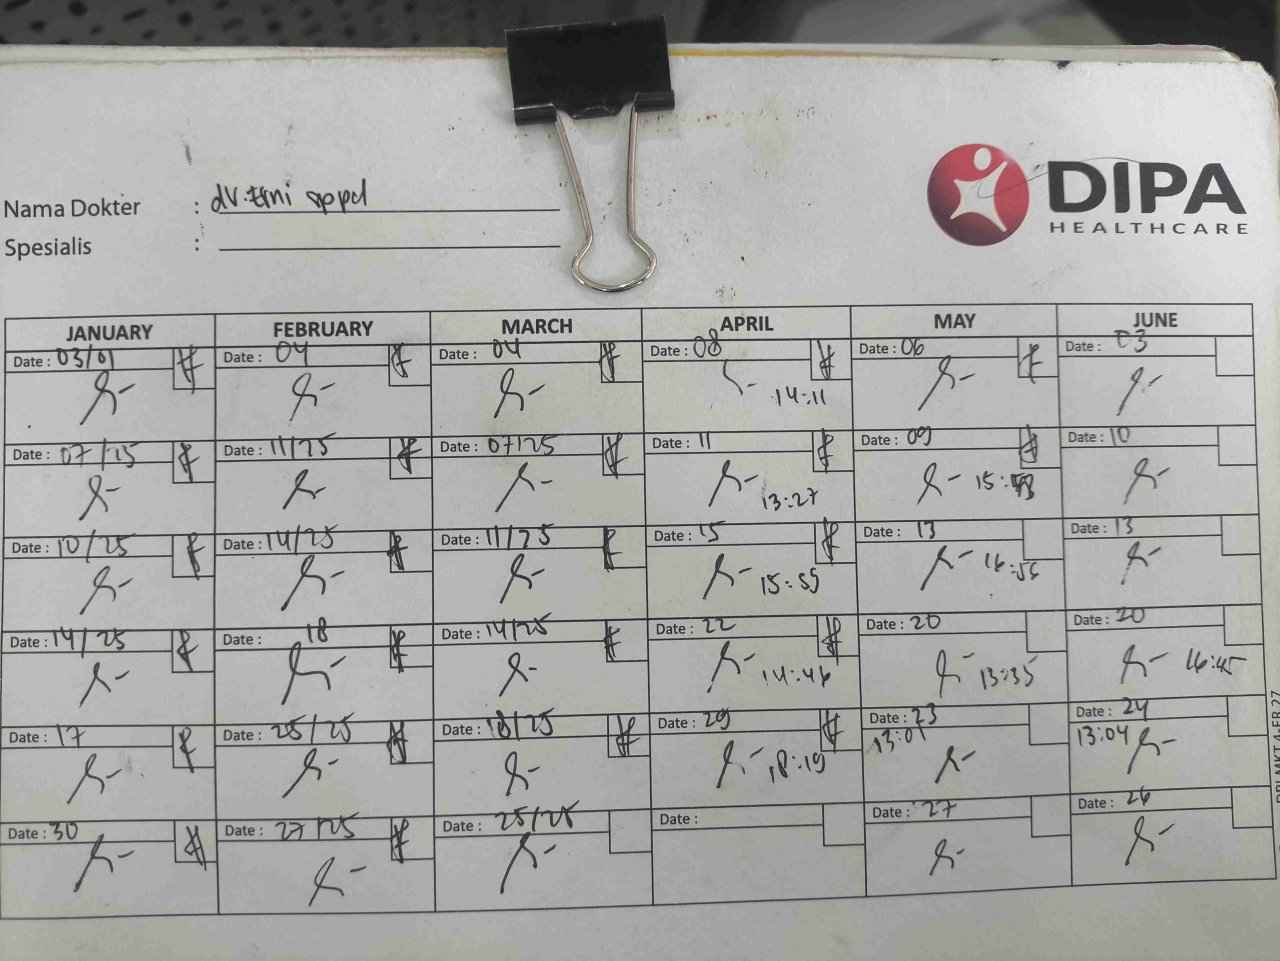 DIPA
HEALTHCARE
Nama Dokter : dr. Erni sppd
Spesialis :
JANUARY FEBRUARY MARCH APRIL MAY JUNE
Date : 03/01 Date : 04 Date : 04 Date : 08 Date : 06 Date : 03
14:11
Date : 07/25 Date : 11/25 Date : 07/25 Date : 11 Date : 09 Date : 10
13:27 15:
Date : 10/25 Date : 14/25 Date : 11/25 Date : 15 Date : 13 Date : 13
15:55 16:55
Date : 14/25 Date : 18 Date : 14/25 Date : 22 Date : 20 Date : 20
14:46 13:35 16:45
Date : 17 Date : 25/25 Date : 18/25 Date : 29 Date : 23 Date : 24
18:19 13:01 13:04
Date : 30 Date : 27/25 Date : 25/25 Date : Date : 27 Date : 26